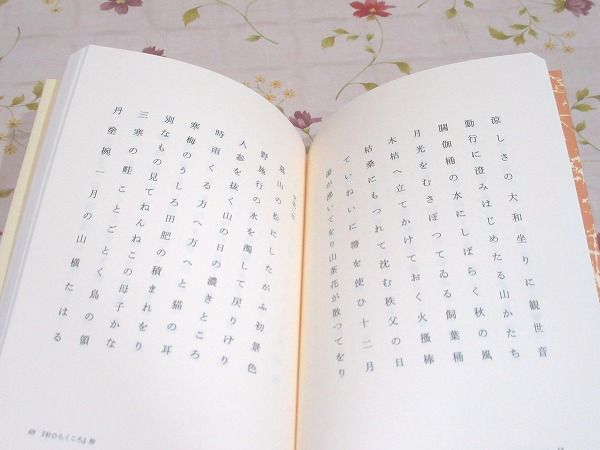 涼しさの大和坐りに観世音
勤行に澄みはじめたる山かたち
閼伽桶の水にしばらく秋の風
月光をむさぼつてゐる飼葉桶
木枯へ立てかけておく火搔棒
枯桑にもつれて沈む秩父の日
ていねいに箒を使ひ十二月
湯が沸いてをり山茶花が散つてをり
嵐山の松にしたがふ初景色
野施行の水を濁して戻りけり
人参を抜く山の日の濃きところ
時雨くる方へ方へと猫の耳
寒梅のうしろ田肥の積まれをり
別なもの見てねんねこの母子かな
三寒の畦ことごとく鳥の領
丹塗椀一月の山横たはる
69 『杉ひらくころ』抄